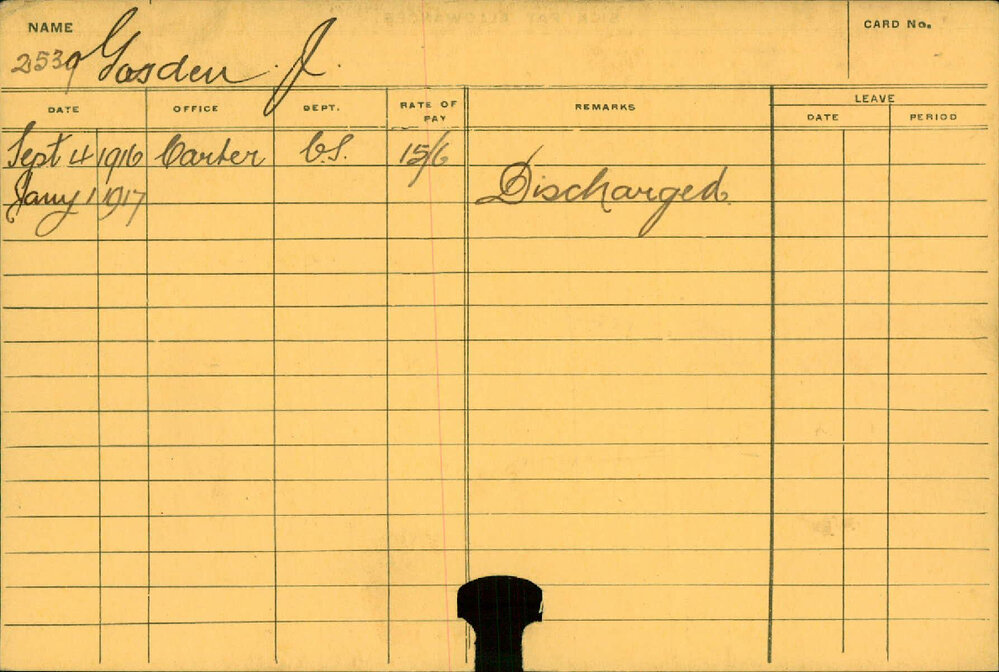 NAME
CARD No.
2539 Gosden. J.
DATE OFFICE DEPT. RATE OF PAY REMARKS LEAVE
DATE PERIOD
Sept 4 1916 Carter C.S. 15/6
Jany 1 1917 Discharged.